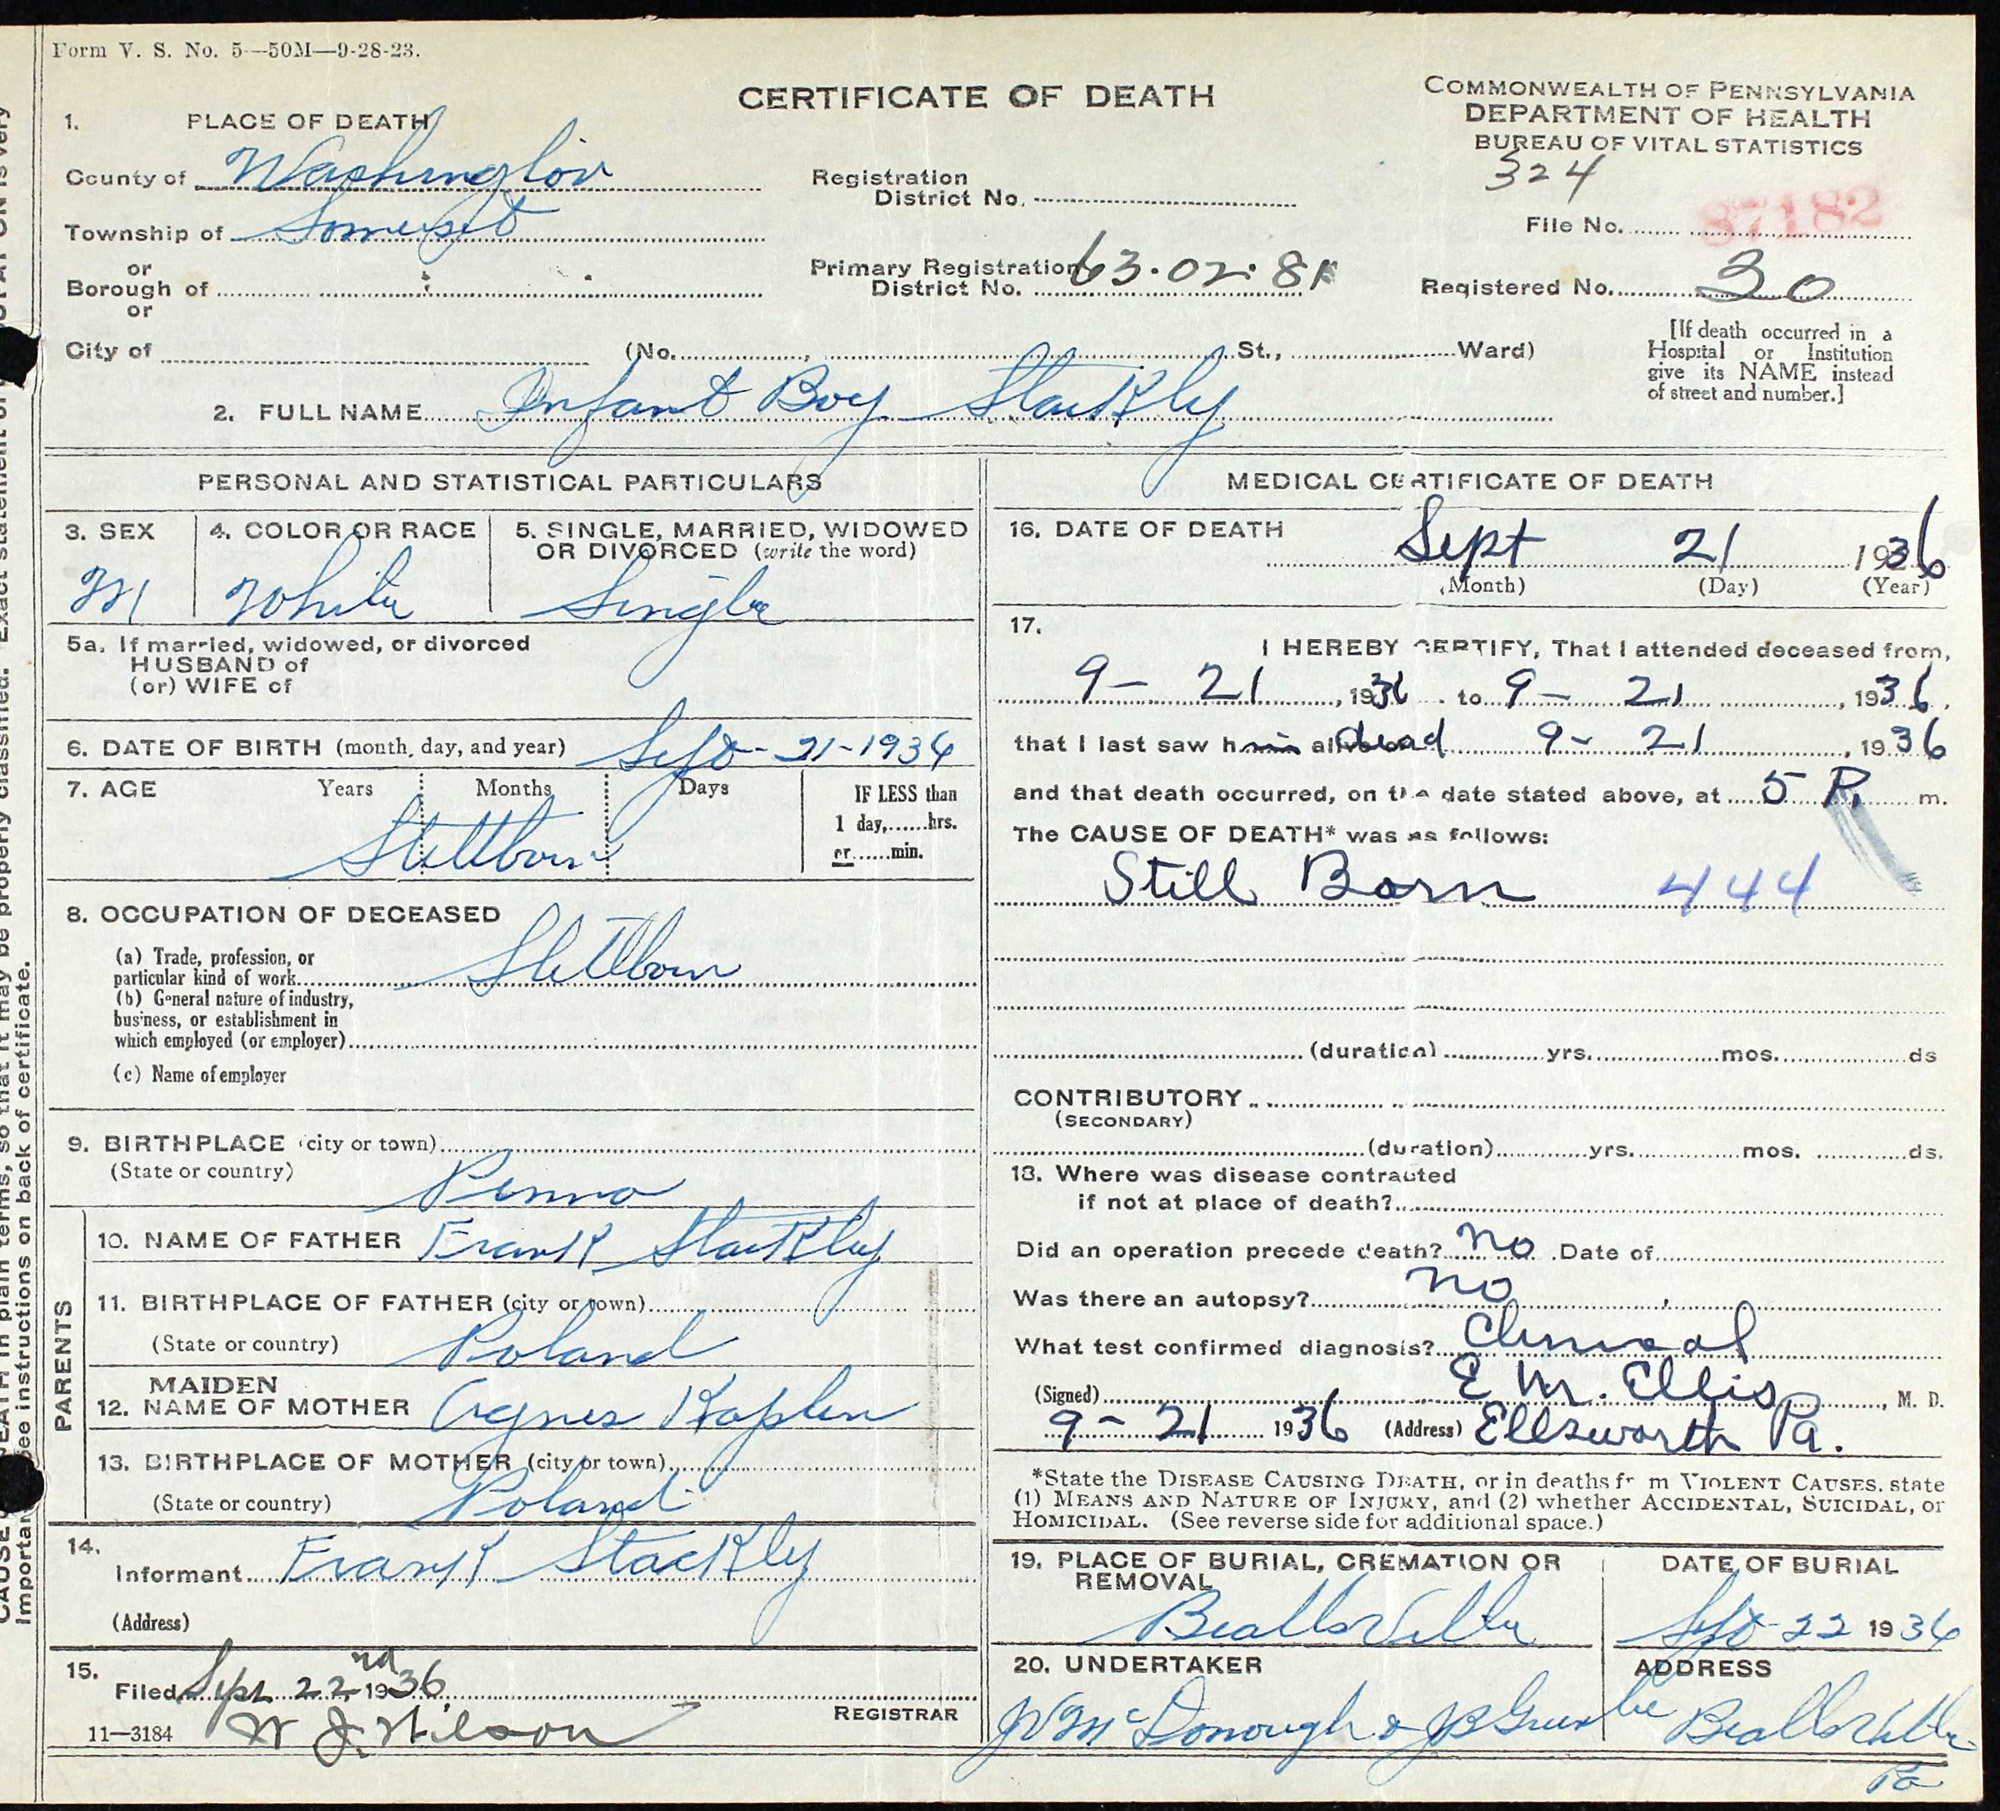 Form V. S. No. 5—50M—9-28-23.
CERTIFICATE OF DEATH
COMMONWEALTH OF PENNSYLVANIA
DEPARTMENT OF HEALTH
BUREAU OF VITAL STATISTICS
1. PLACE OF DEATH
County of Washington
Township of Somerset
or
Borough of
or
City of (No. , St., Ward)
Registration
District No.
Primary Registration
District No. 63-02-81
324
File No. 87182
Registered No. 30
[If death occurred in a
Hospital or Institution
give its NAME instead
of street and number.]
2. FULL NAME Infant Boy Stackly
PERSONAL AND STATISTICAL PARTICULARS
3. SEX
M
4. COLOR OR RACE
White
5. SINGLE, MARRIED, WIDOWED
OR DIVORCED (write the word)
Single
5a. If married, widowed, or divorced
HUSBAND of
(or) WIFE of
6. DATE OF BIRTH (month, day, and year) Sept-21-1936
7. AGE Years Months Days
Stillborn
IF LESS than
1 day,......hrs.
or......min.
8. OCCUPATION OF DECEASED
(a) Trade, profession, or
particular kind of work Stillborn
(b) General nature of industry,
business, or establishment in
which employed (or employer)
(c) Name of employer
9. BIRTHPLACE (city or town)
(State or country) Penna
PARENTS
10. NAME OF FATHER Frank Stackly
11. BIRTHPLACE OF FATHER (city or town)
(State or country) Poland
12. MAIDEN
NAME OF MOTHER Agnes Kaplen
13. BIRTHPLACE OF MOTHER (city or town)
(State or country) Poland
14.
Informant Frank Stackly
(Address)
15.
Filed Sept 22nd 1936
W J. Wilson
REGISTRAR
11—3184
MEDICAL CERTIFICATE OF DEATH
16. DATE OF DEATH
Sept 21 1936
(Month) (Day) (Year)
17.
I HEREBY CERTIFY, That I attended deceased from,
9 - 21, 1936 to 9 - 21, 1936,
that I last saw h dead 9 - 21, 1936
and that death occurred, on the date stated above, at 5 P. m.
The CAUSE OF DEATH* was as follows:
Still Born 444
(duration) yrs. mos. ds
CONTRIBUTORY
(SECONDARY)
(duration) yrs. mos. ds.
18. Where was disease contracted
if not at place of death?
Did an operation precede death? No Date of
Was there an autopsy? No
What test confirmed diagnosis? Clinical
(Signed) E M. Ellis, M. D.
9 - 21 1936 (Address) Ellsworth Pa.
*State the DISEASE CAUSING DEATH, or in deaths from VIOLENT CAUSES, state
(1) MEANS AND NATURE OF INJURY, and (2) whether ACCIDENTAL, SUICIDAL, or
HOMICIDAL. (See reverse side for additional space.)
19. PLACE OF BURIAL, CREMATION OR
REMOVAL
Beallsville
DATE OF BURIAL
Sept-22 1936
20. UNDERTAKER
McDonough &
ADDRESS
Beallsville
Pa
properly classified. Exact statement of
EATH in plain terms, so that it may be
See instructions on back of certificate.